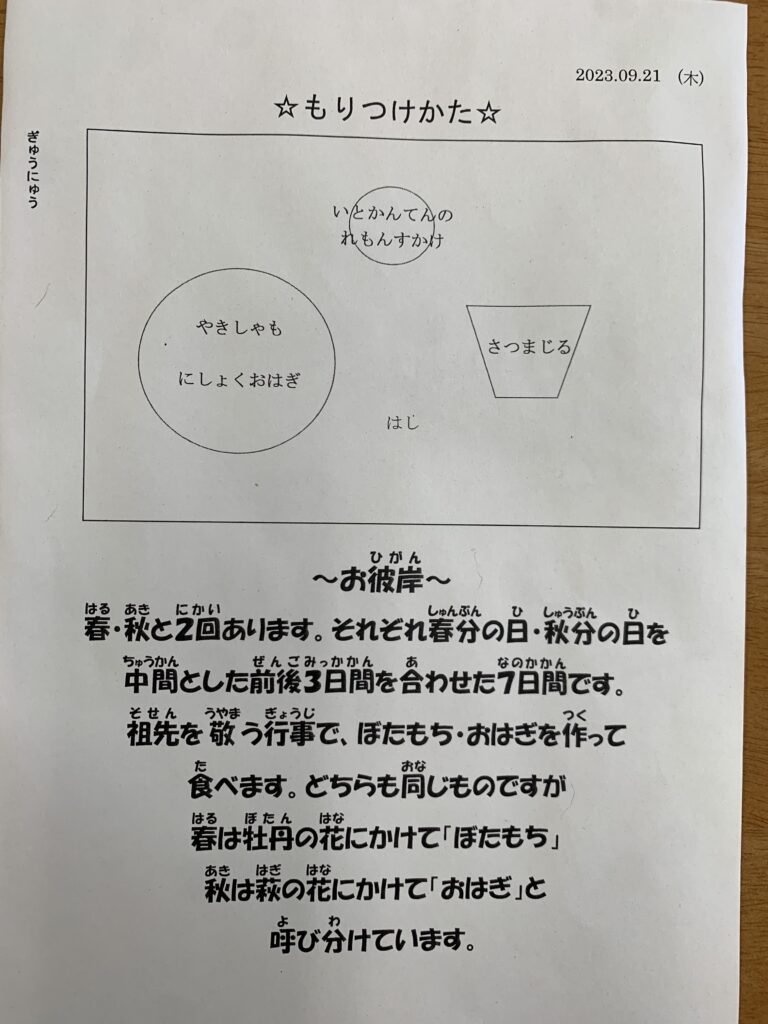 2023.09.21　(木)
☆もりつけかた☆
ぎゅうにゅう
いとかんてんの
れもんすかけ
やきしゃも
にしょくおはぎ
さつまじる
はし
ひがん
～お彼岸～
はる あき にかい しゅんぶん ひ しゅうぶん ひ
春・秋と2回あります。それぞれ春分の日・秋分の日を
ちゅうかん ぜんごみっかかん あ なのかかん
中間とした前後3日間を合わせた7日間です。
そせん うやま ぎょうじ つく
祖先を敬う行事で、ぼたもち・おはぎを作って
た おな
食べます。どちらも同じものですが
はる ぼたん はな
春は牡丹の花にかけて「ぼたもち」
あき はぎ はな
秋は萩の花にかけて「おはぎ」と
よ わ
呼び分けています。